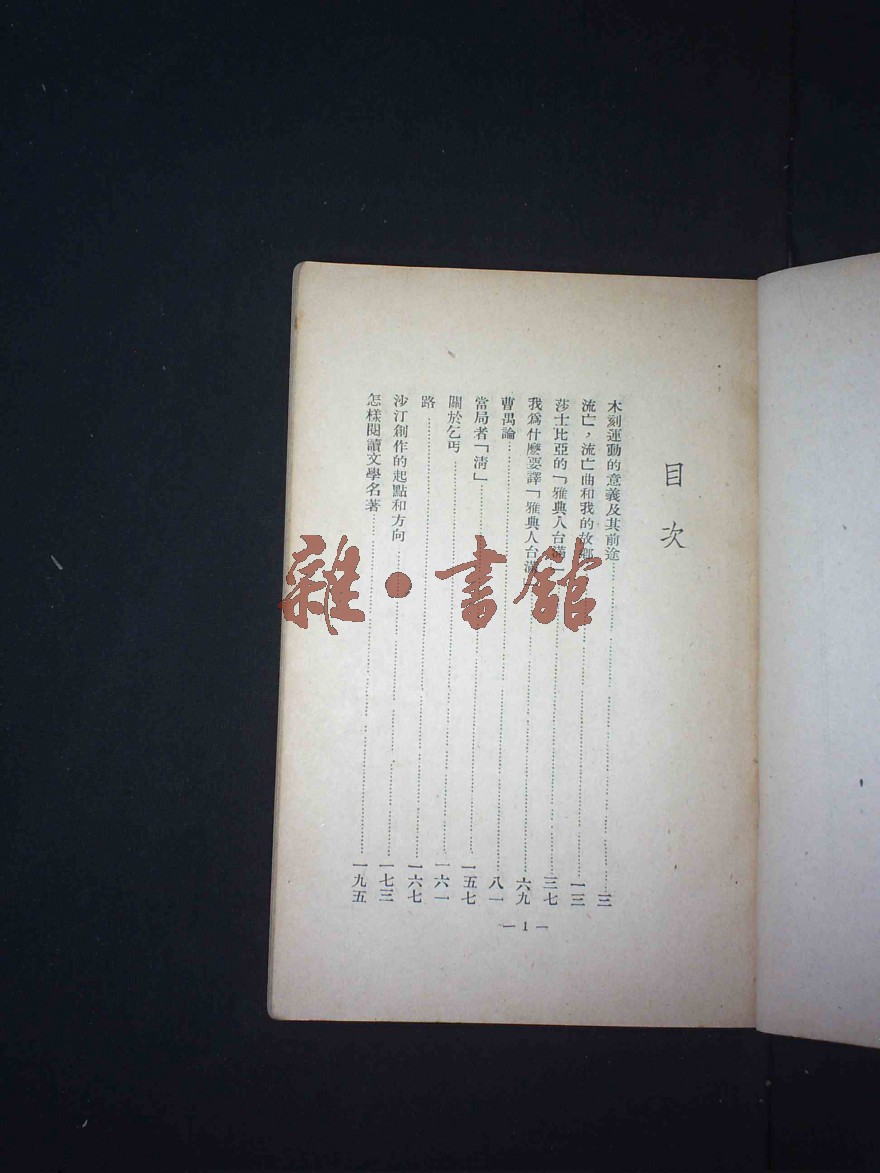 目次
木刻運動的意義及其前途……三
流亡，流亡曲和我的故鄉……一三
莎士比亞的「雅典人台滿」……三七
我爲什麽要譯「雅典人台滿」……六九
曹禺論……八一
當局者「清」……一五七
關於乞丐……一六一
路……一六七
沙汀創作的起點和方向……一七三
怎樣閱讀文學名著……一九五
— 1 —
雜·書館